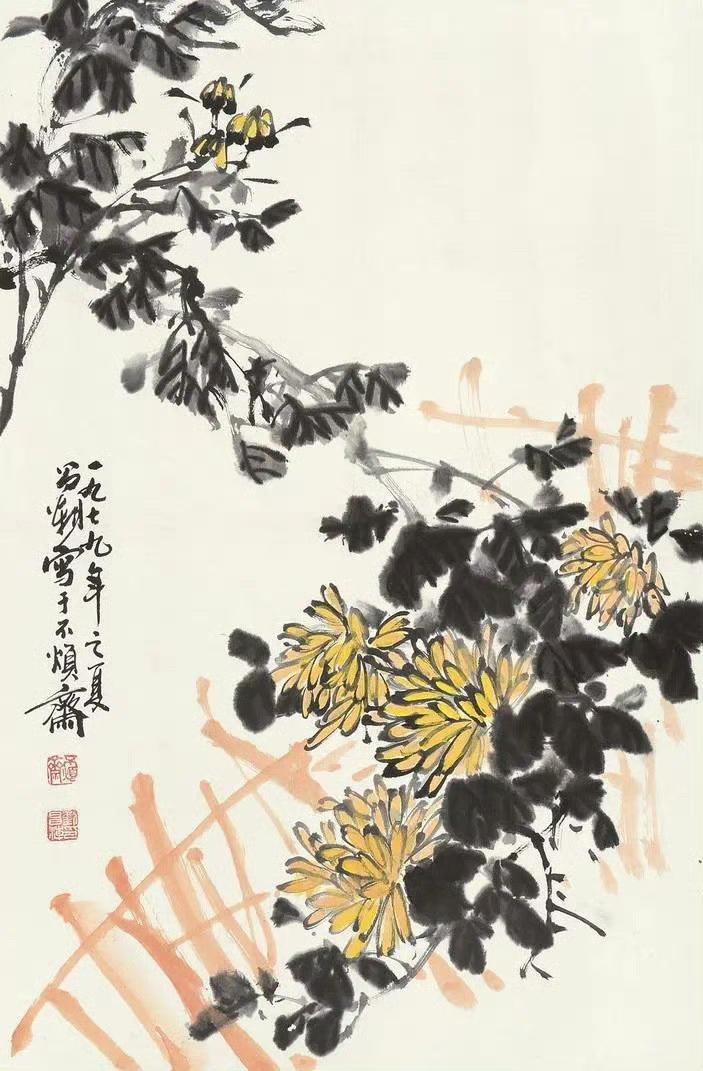 一九七九年之夏
昌潮寫于不煩齋